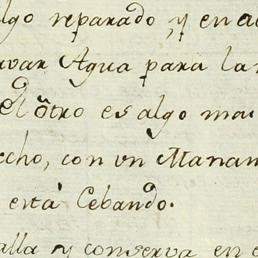 lgo reparado, y en a
var Agua para la
El ótro es algo ma
echo, con vn Manan
está Cebando.
alla y conserva en e